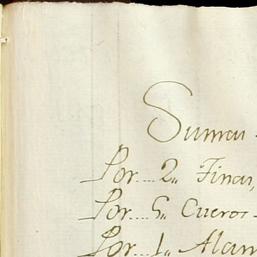 Suman
Por....2,, Tinas,
Por....5,, Cueros
Por....1,, Alam